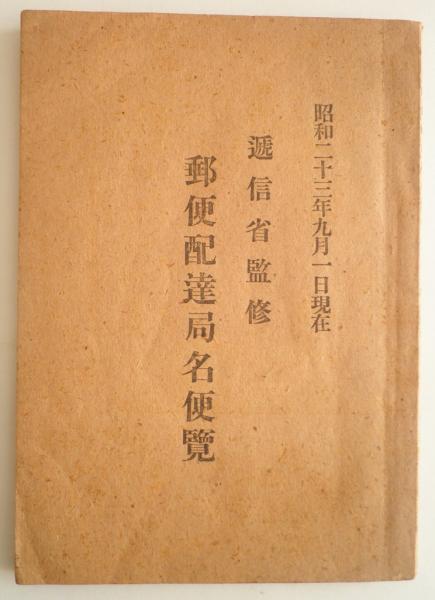 昭和二十三年九月一日現在
遞信省監修
郵便配達局名便覽